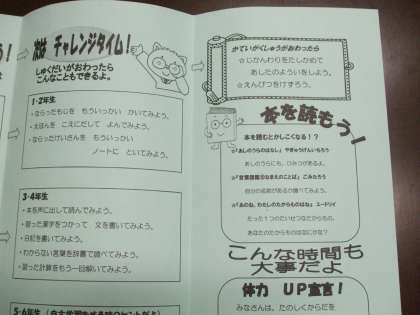 う！
旅技 チャレンジタイム！
しゅくだいがおわったら
こんなこともできるよ。
1・2年生
・ならったもじを もういっかい かいてみよう。
・えほんを こえにだして よんでみよう。
・ならったけいさんを もういっかい
ノートに といてみよう。
3・4年生
・本を声に出して読んでみよう。
・習った漢字をつかって 文を書いてみよう。
・日記を書いてみよう。
・わからない言葉を辞書で調べてみよう。
・習った計算をもう一回解いてみよう。
かていがくしゅうがおわったら
☆じかんわりをたしかめて
あしたのよういをしよう。
☆えんぴつをけずろう。
本を読もう！
本を読むとかしこくなる！？
「あしのうらのはなし」 やぎゅうげんいちろう
あしのうらにも、ひみつがあるよ。
こみたろう
自分の名前があるか調べてみよう。
「あのね、わたしのたからものはね」 ユードリイ
たった１つのたいせつなたからもの。
あなたのたからものはなにかな？
こんな時間も
大事だよ
体力 ＵＰ宣言！
みなさんは、たのしくからだを